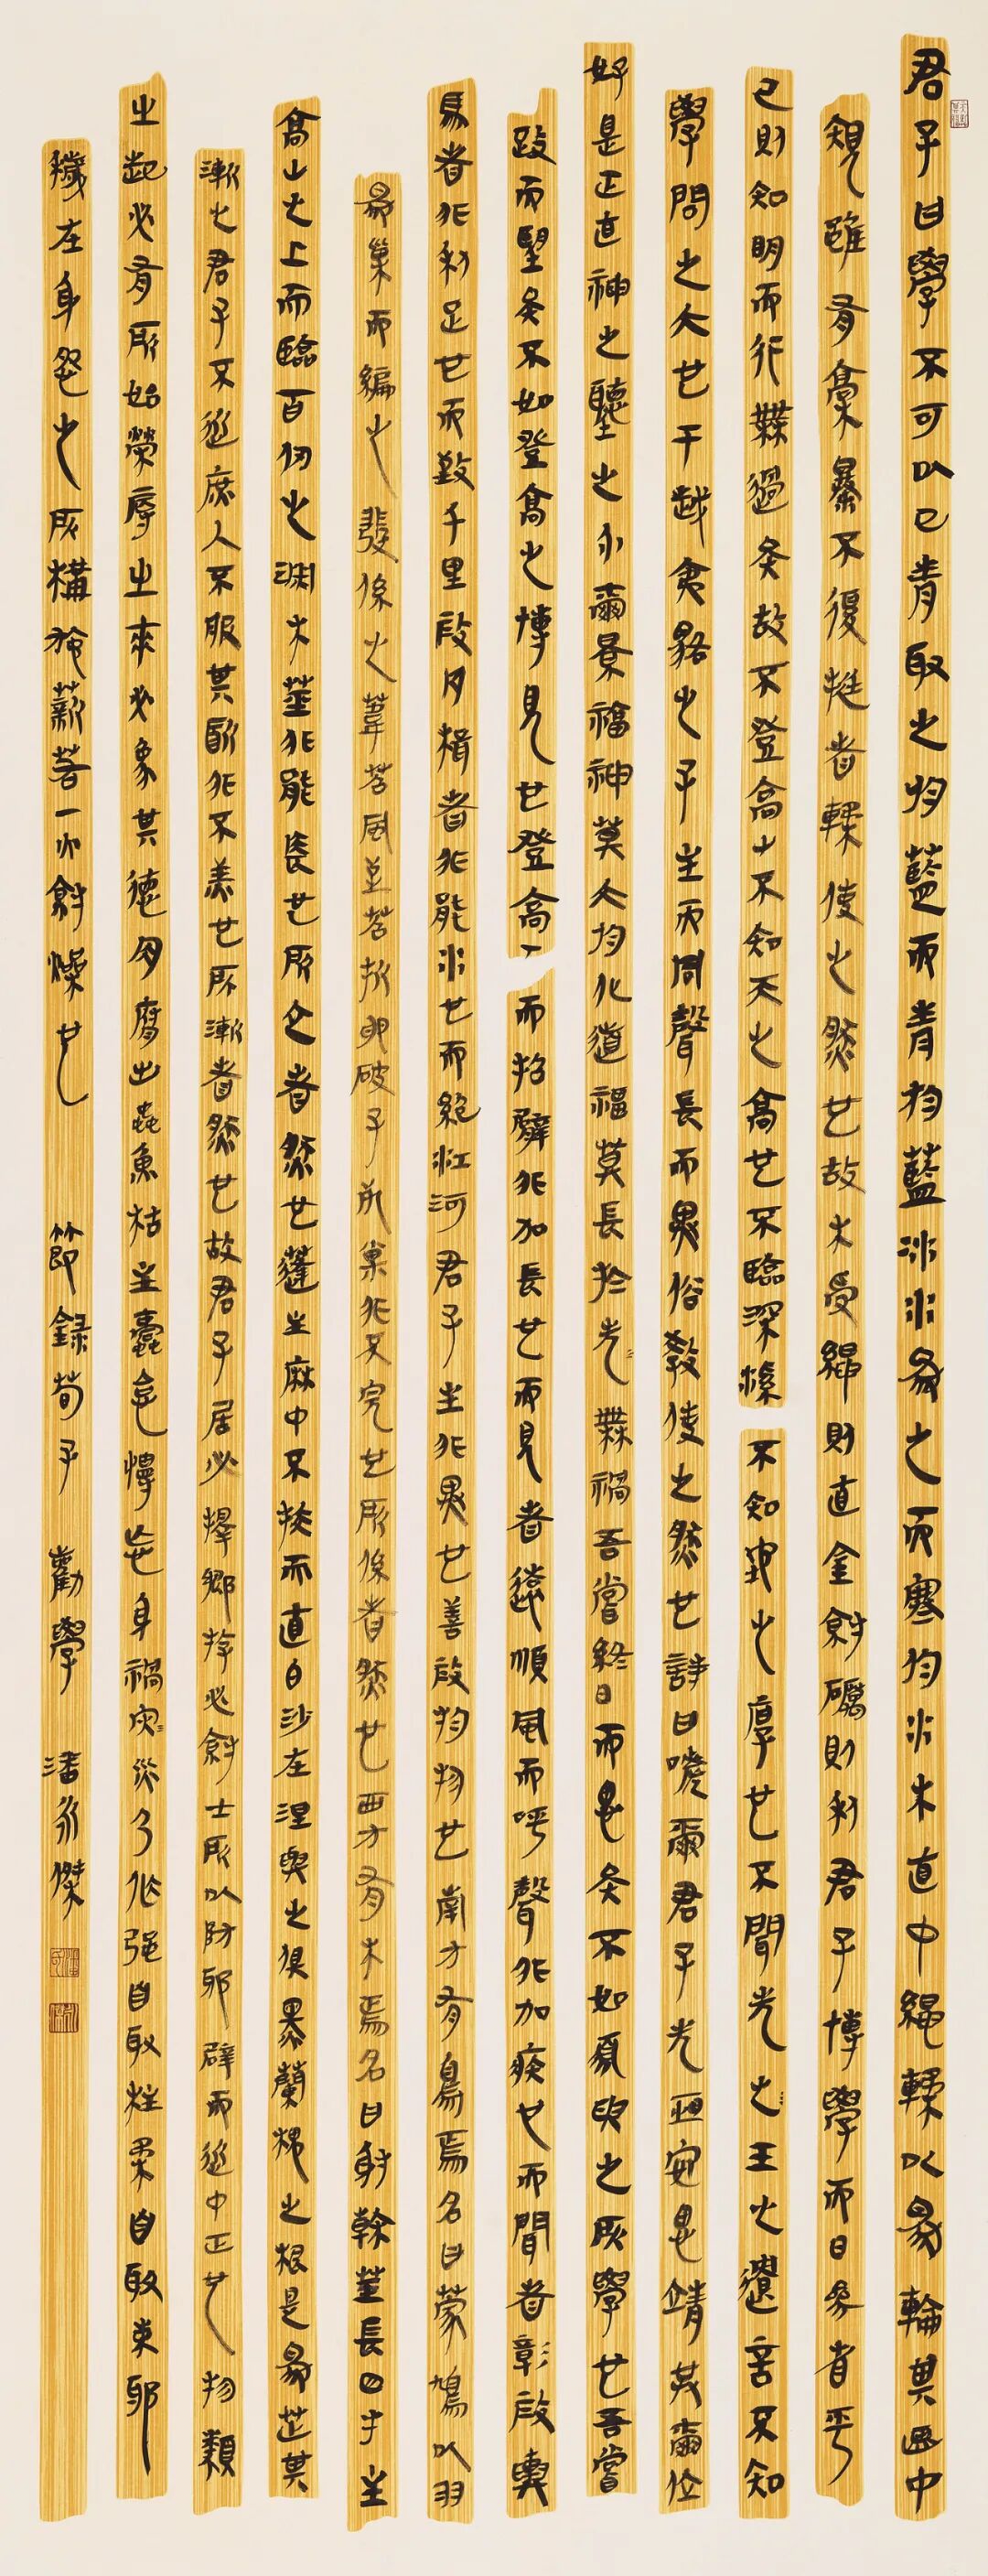 君子曰學不可以已青取之於藍而青於藍冰水為之而寒於水木直中繩輮以為輪其曲中
規雖有槁暴不復挺者輮使之然也故木受繩則直金就礪則利君子博學而日參省乎
己則知明而行無過矣故不登高山不知天之高也不臨深谿不知地之厚也不聞先之王之遺言不知
學問之大也干越夷貉之子生而同聲長而異俗教使之然也詩曰嗟爾君子无恆安息靖共爾位
好是正直神之聽之介爾景福神莫大於化道福莫長於无禍吾嘗終日而思矣不如須臾之所學也吾嘗
跂而望矣不如登高之博見也登高而招臂非加長也而見者遠順風而呼聲非加疾也而聞者彰假輿
馬者非利足也而致千里假舟楫者非能水也而絕江河君子生非異也善假於物也南方有鳥焉名曰蒙鳩以羽
為巢而編之髮係之葦苕風至苕折卵破子死巢非不完也所係者然也西方有木焉名曰射幹莖長四寸生
高山之上而臨百仞之淵木莖非能長也所立者然也蓬生麻中不扶而直白沙在涅與之俱黑蘭槐之根是為芷其
漸之君子不近庶人不服其質非不美也所漸者然也故君子居必擇鄉遊必就士所以防邪辟而近中正也物類
之起必有所始榮辱之來必象其德肉腐出蟲魚枯生蠹怠慢忘身禍災乃作強自取柱柔自取束邪
穢在身怨之所構施薪若一火就燥也 節錄荀子 勸學 潘永傑